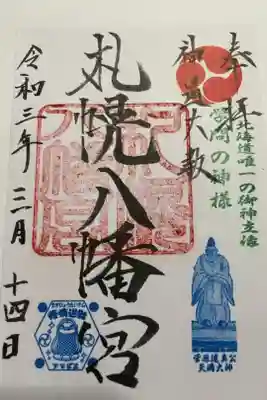 奉拝
北海道唯一の御神立像
学問の神様
御道大教
札幌八幡宮
令和三年三月十四日
菅原道真公
天満大神